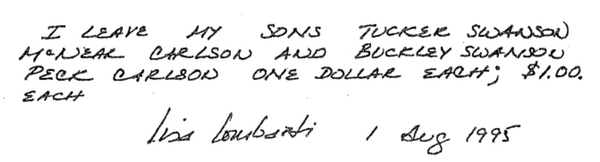 I LEAVE MY SONS TUCKER SWANSON
McNEAR CARLSON AND BUCKLEY SWANSON
PECK CARLSON ONE DOLLAR EACH; $1.00.
EACH
Lisa Lombardi 1 Aug 1995